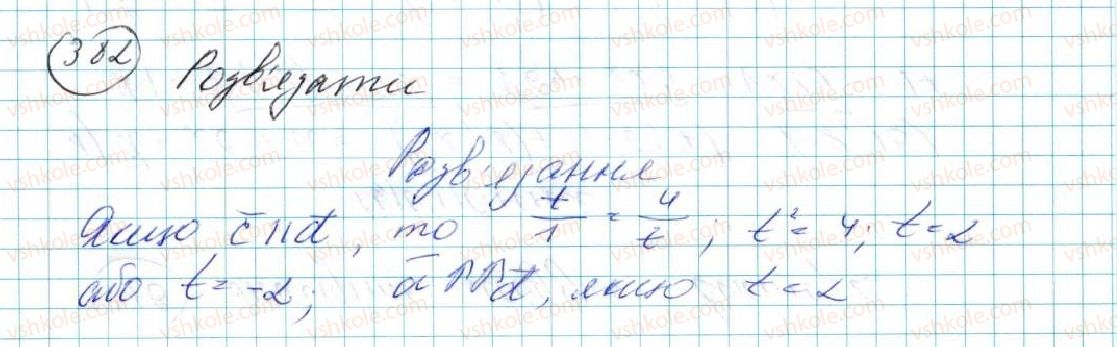 382 Розв'язати
Розв'язання
Якщо c̄ || d̄, то t/1 = 4/t; t² = 4; t = 2
або t = -2; ā ↑↑ d̄, якщо t = 2